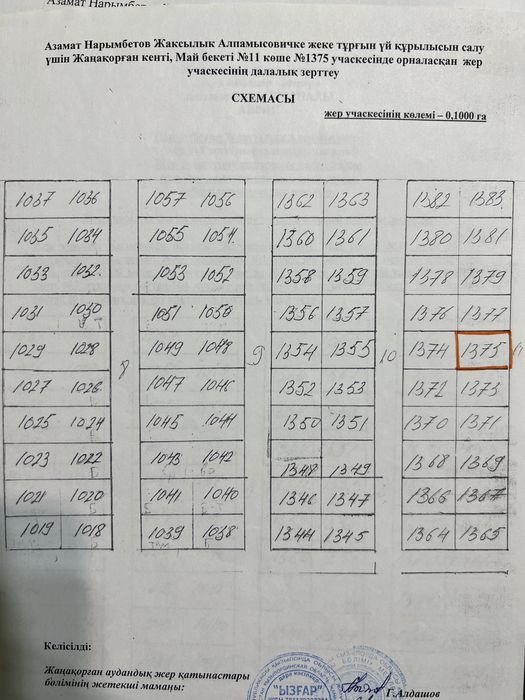 Азамат Нарымбетов Жаксылык Алпамысовичке жеке тұрғын үй құрылысын салу
үшін Жаңақорған кенті, Май бекеті №11 көше №1375 учаскесінде орналасқан жер
учаскесінің далалық зерттеу
СХЕМАСЫ
жер учаскесінің көлемі – 0,1000 га
1037 1036 1057 1056 1362 1363 1382 1383
1035 1034 1055 1054 1360 1361 1380 1381
1033 1032 1053 1052 1358 1359 1378 1379
1031 1030 1051 1050 1356 1357 1376 1377
1029 1028 8 1049 1048 9 1354 1355 10 1374 1375 11
1027 1026 1047 1046 1352 1353 1372 1373
1025 1024 1045 1044 1350 1351 1370 1371
1023 1022 1043 1042 1348 1349 1368 1369
1021 1020 1041 1040 1346 1347 1366 1367
1019 1018 1039 1038 1344 1345 1364 1365
Келісілді:
Жаңақорған аудандық жер қатынастары
бөлімінің жетекші маманы:
"ЫЗҒАР"
Г.Алдашов